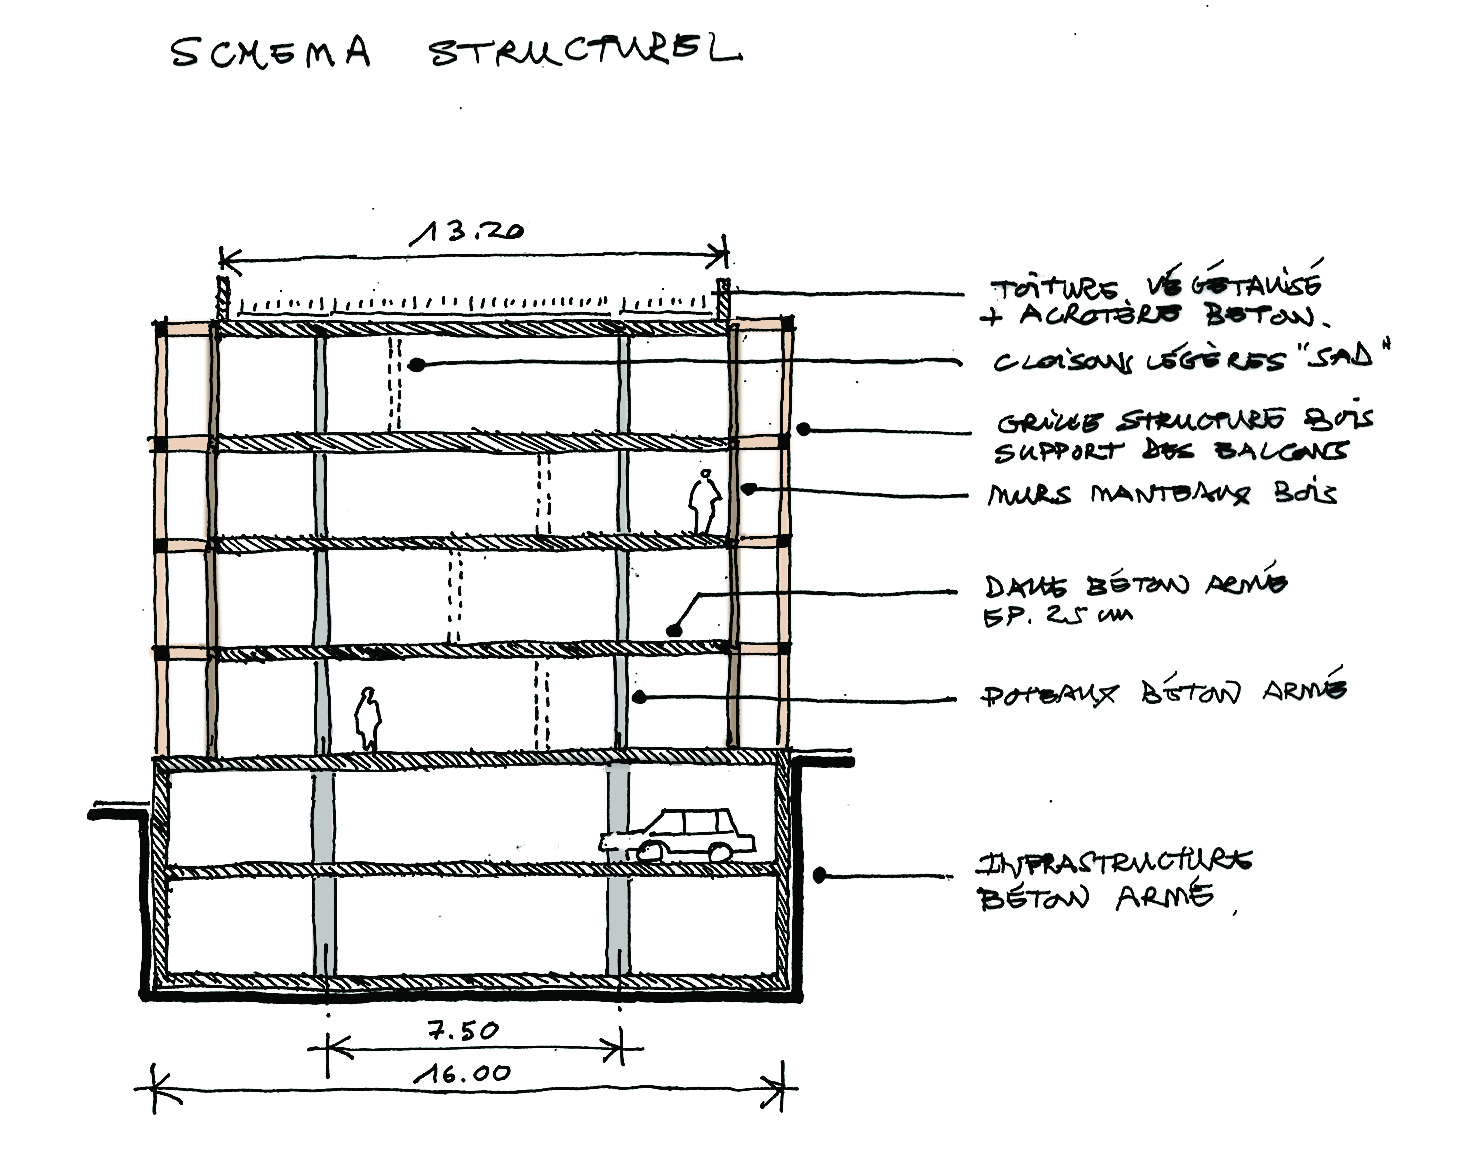 SCHEMA STRUCTUREL
13.20
TOITURE VÉGÉTALISÉ
+ ACROTÈRE BETON.
CLOISONS LÉGÈRES "SAD"
GRILLE STRUCTURE BOIS
SUPPORT DES BALCONS
MURS MANTEAUX BOIS
DALLE BÉTON ARMÉ
EP. 25 cm
POTEAUX BÉTON ARMÉ
INFRASTRUCTURE
BÉTON ARMÉ
7.50
16.00